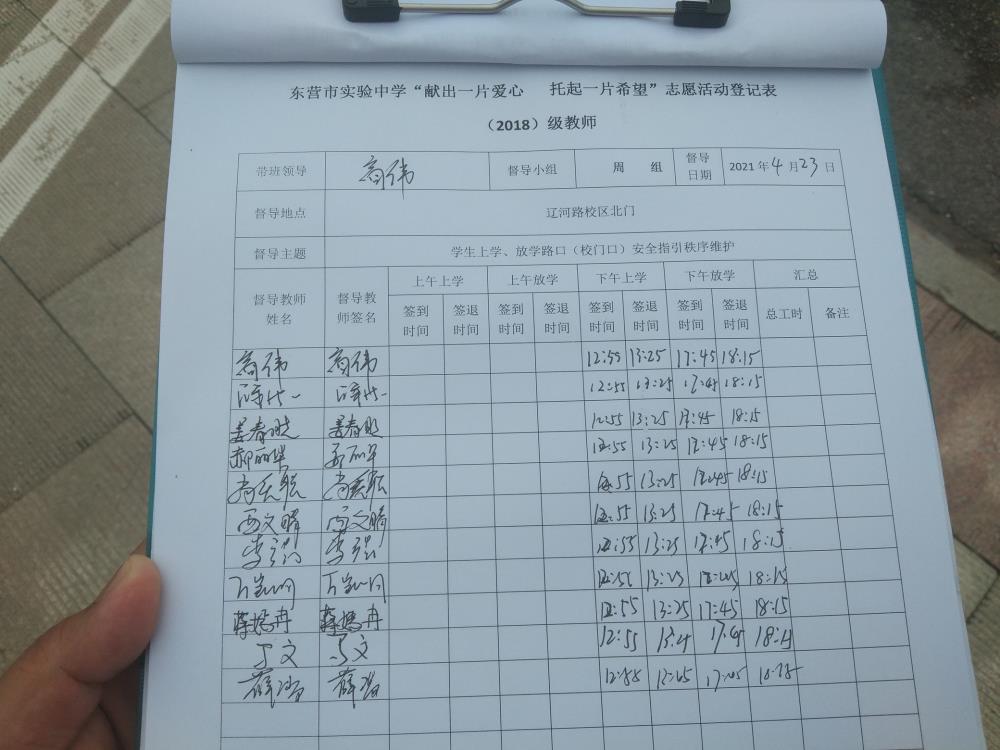 东营市实验中学“献出一片爱心 托起一片希望”志愿活动登记表
（2018）级教师
带班领导 高伟 督导小组 周 组 督导日期 2021年4月23日
督导地点 辽河路校区北门
督导主题 学生上学、放学路口（校门口）安全指引秩序维护
督导教师姓名 督导教师签名 上午上学 上午放学 下午上学 下午放学 汇总
签到时间 签退时间 签到时间 签退时间 签到时间 签退时间 签到时间 签退时间 总工时 备注
高伟 高伟 12:55 13:25 17:45 18:15
12:55 13:25 17:45 18:15
姜春晓 姜春晓 12:55 13:25 17:45 18:15
郝丽华 12:55 13:25 17:45 18:15
12:55 13:25 17:45 18:15
西文晴 西文晴 12:55 13:25 17:45 18:15
李强 李强 12:55 13:25 17:45 18:15
13:25 18:15
蒋冉 蒋冉 12:55 13:25 17:45 18:15
文 文 12:55 17:45
薛 薛